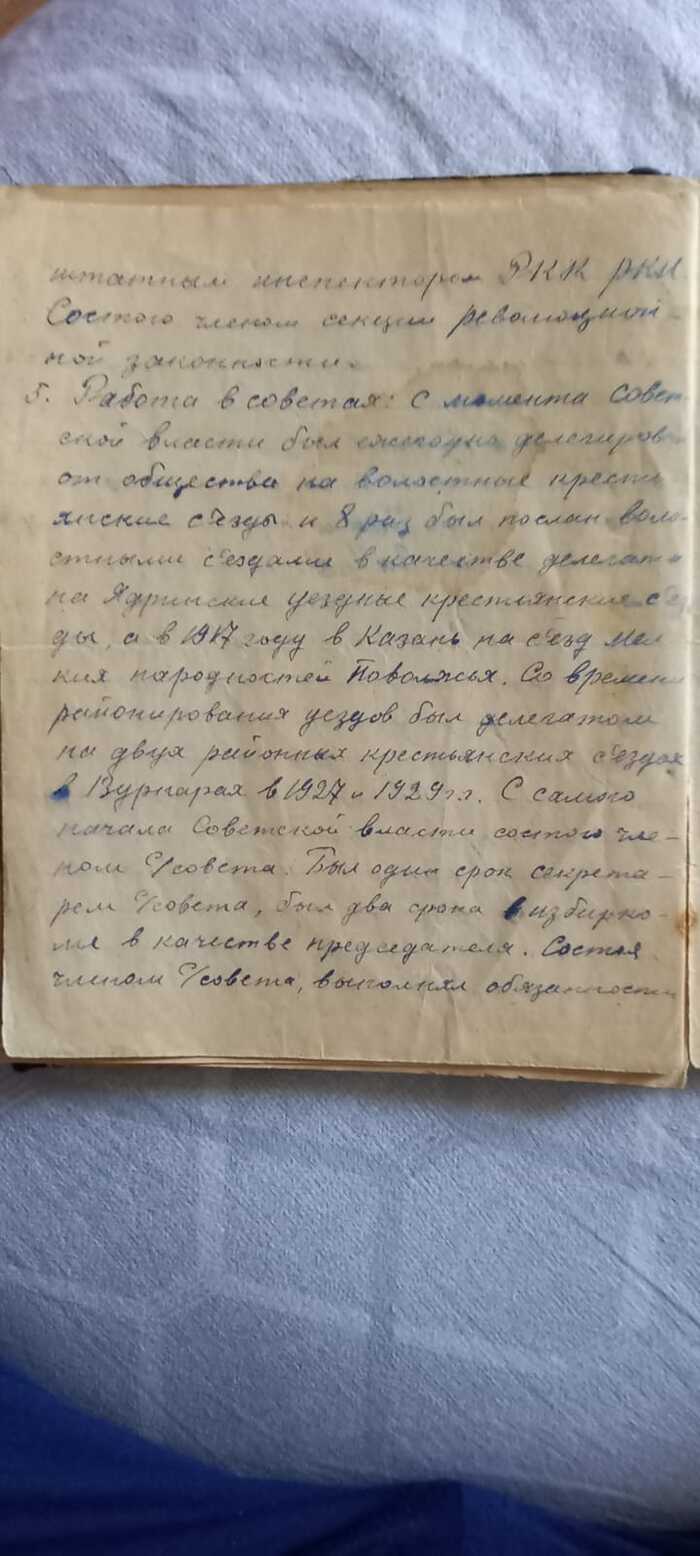 штатным инспектором РКК РКИ
Состою членом секции революцион-
ной законности.
5. Работа в советах: с момента Совет-
ской власти был ежегодно делегиров
от общества на волостные крест
янские с'езды и 8 раз был послан воло
стными с'ездами в качестве делегата
на Ядринские уездные крестьянские с'ез
ды, а в 1917 году в Казань на с'езд мел
ких народностей Поволжья. Со времени
районирования уездов был делегатом
на двух районных крестьянских с'ездах
в Вурнарах в 1927 и 1929 г.г. С самого
начала Советской власти состою чле-
ном с/совета. Был один срок секрета-
рем с/совета, был два срока в избирко-
ме в качестве председателя. Состоя
членом с/совета, выполнял обязанности